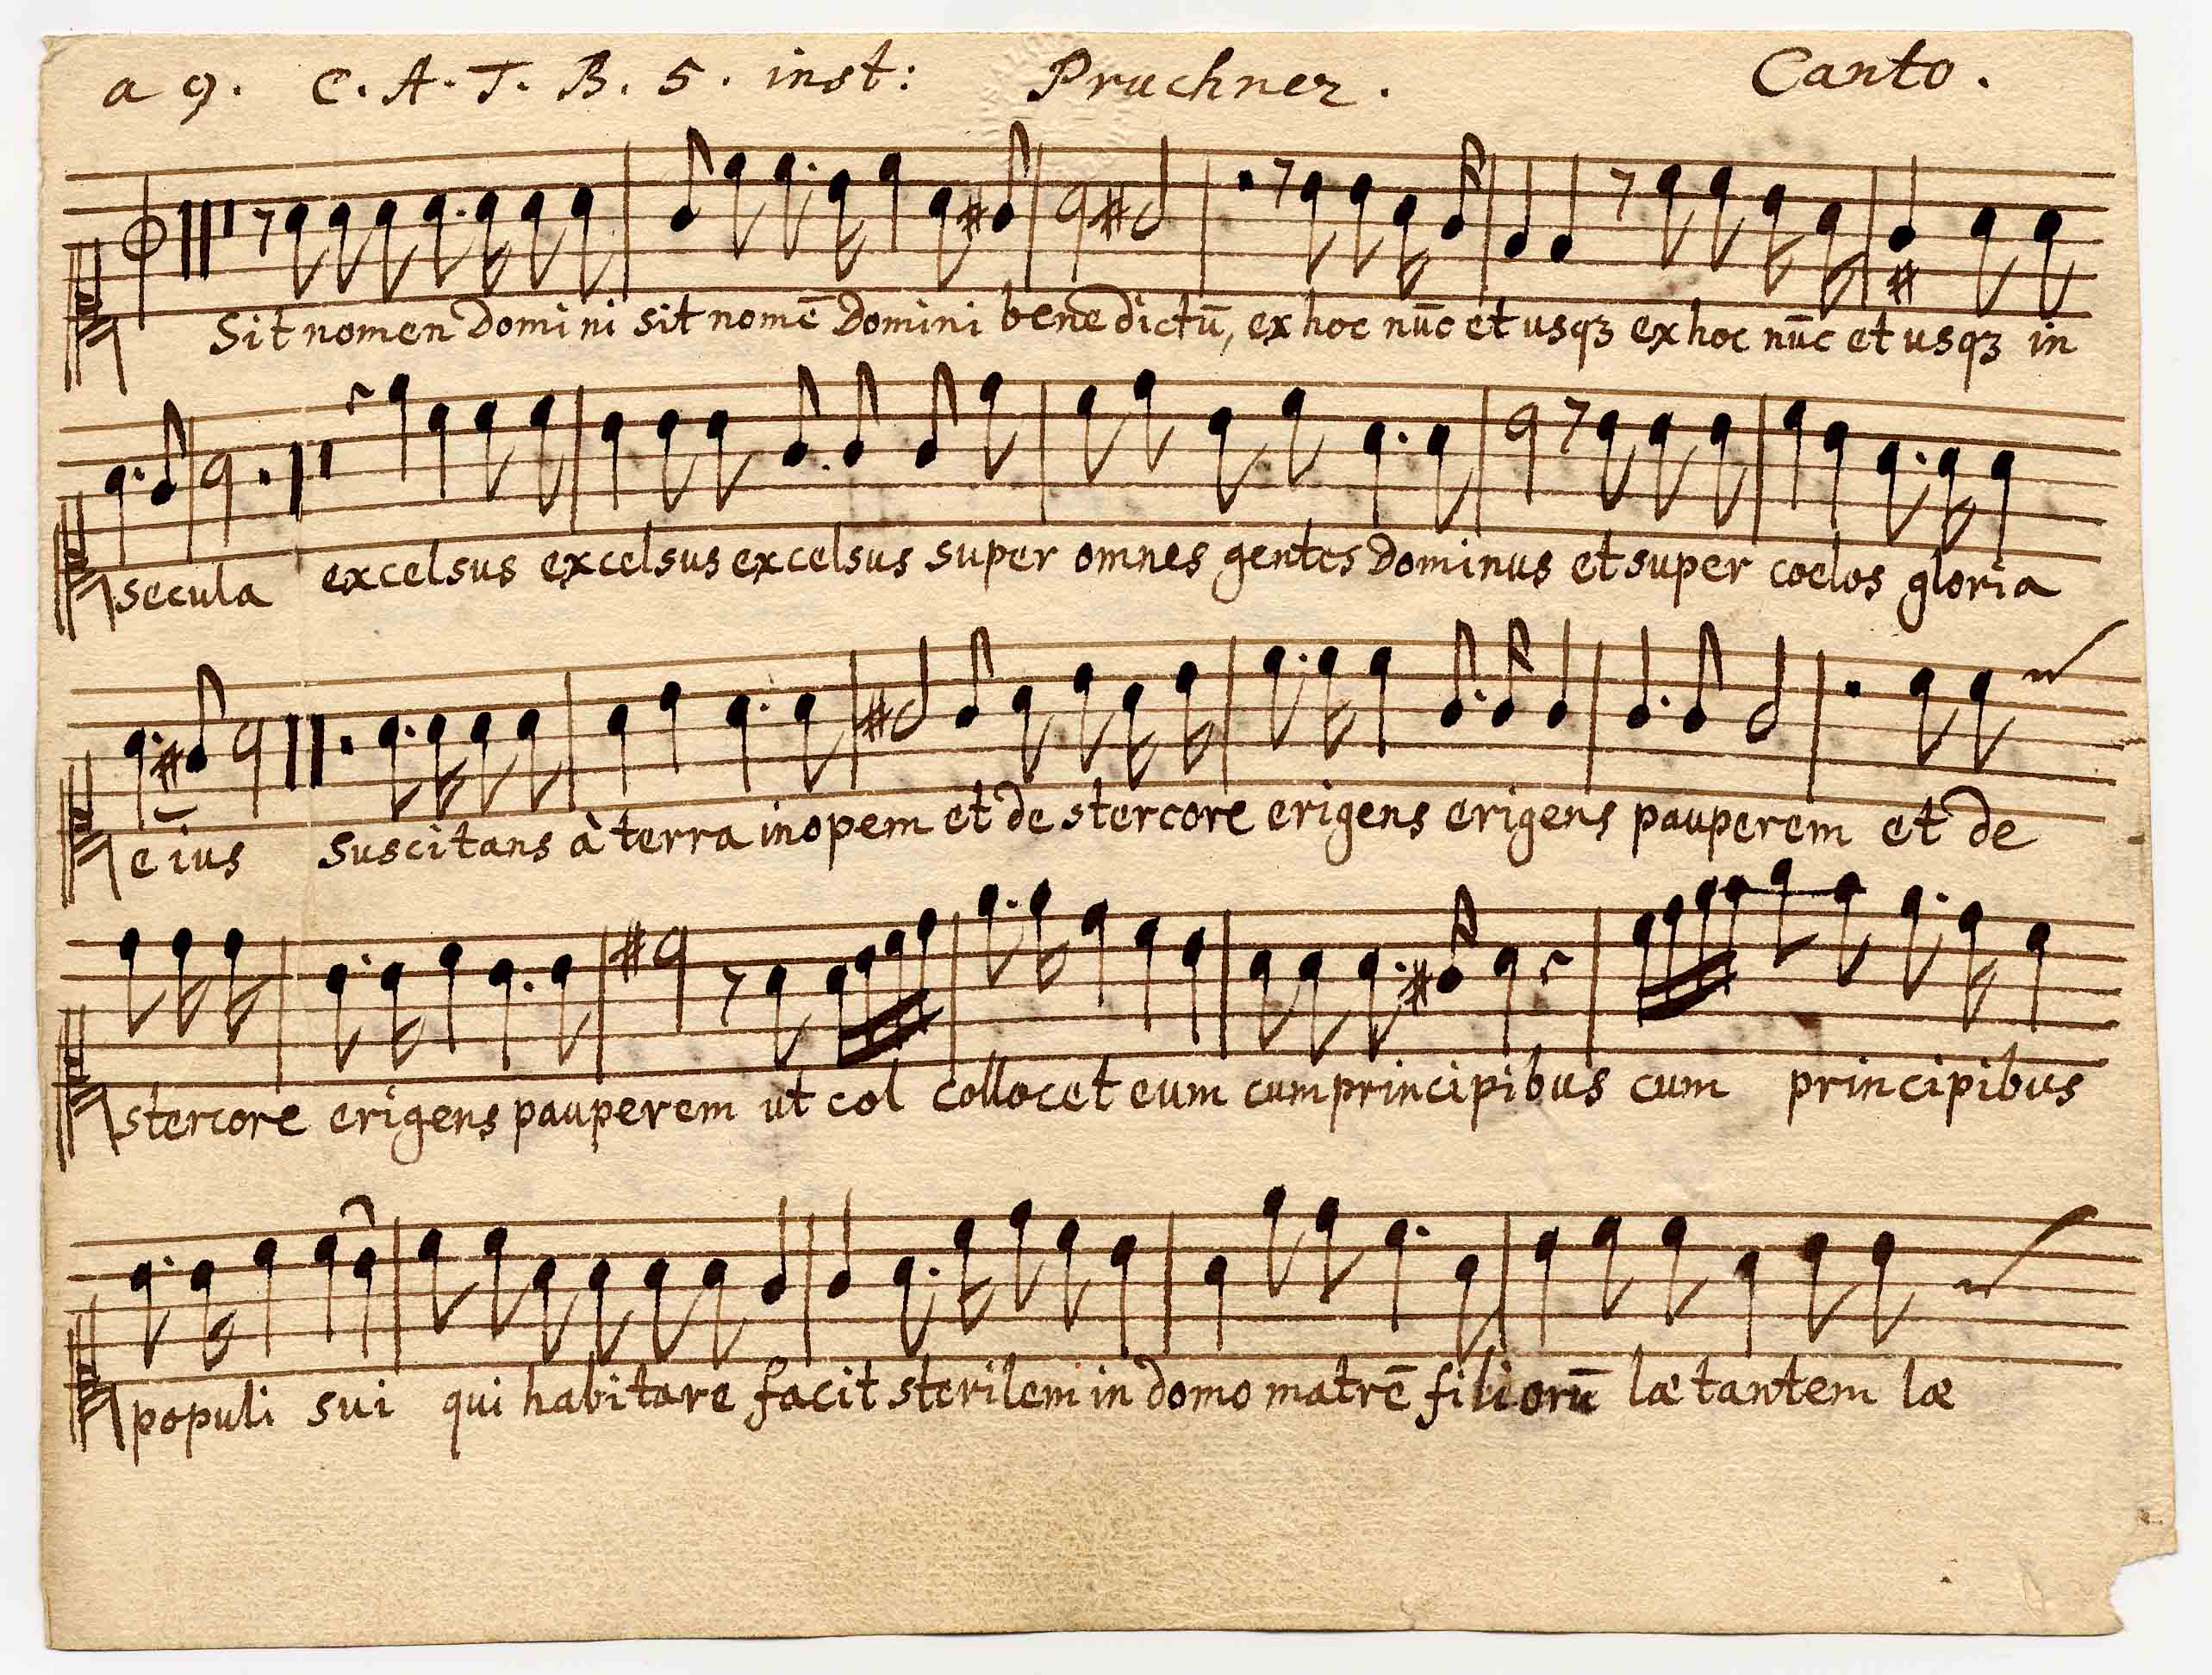 a 9. C. A. T. B. 5. inst: Pruchner. Canto.
Sit nomen Domini sit nomē Domini benedictū, ex hoc nūc et usqꝫ ex hoc nūc et usqꝫ in
secula excelsus excelsus excelsus super omnes gentes Dominus et super coelos gloria
eius suscitans à terra inopem et de stercore erigens erigens pauperem et de
stercore erigens pauperem ut col collocet eum cum principibus cum principibus
populi sui qui habitare facit sterilem in domo matrē filiorū lætantem læ